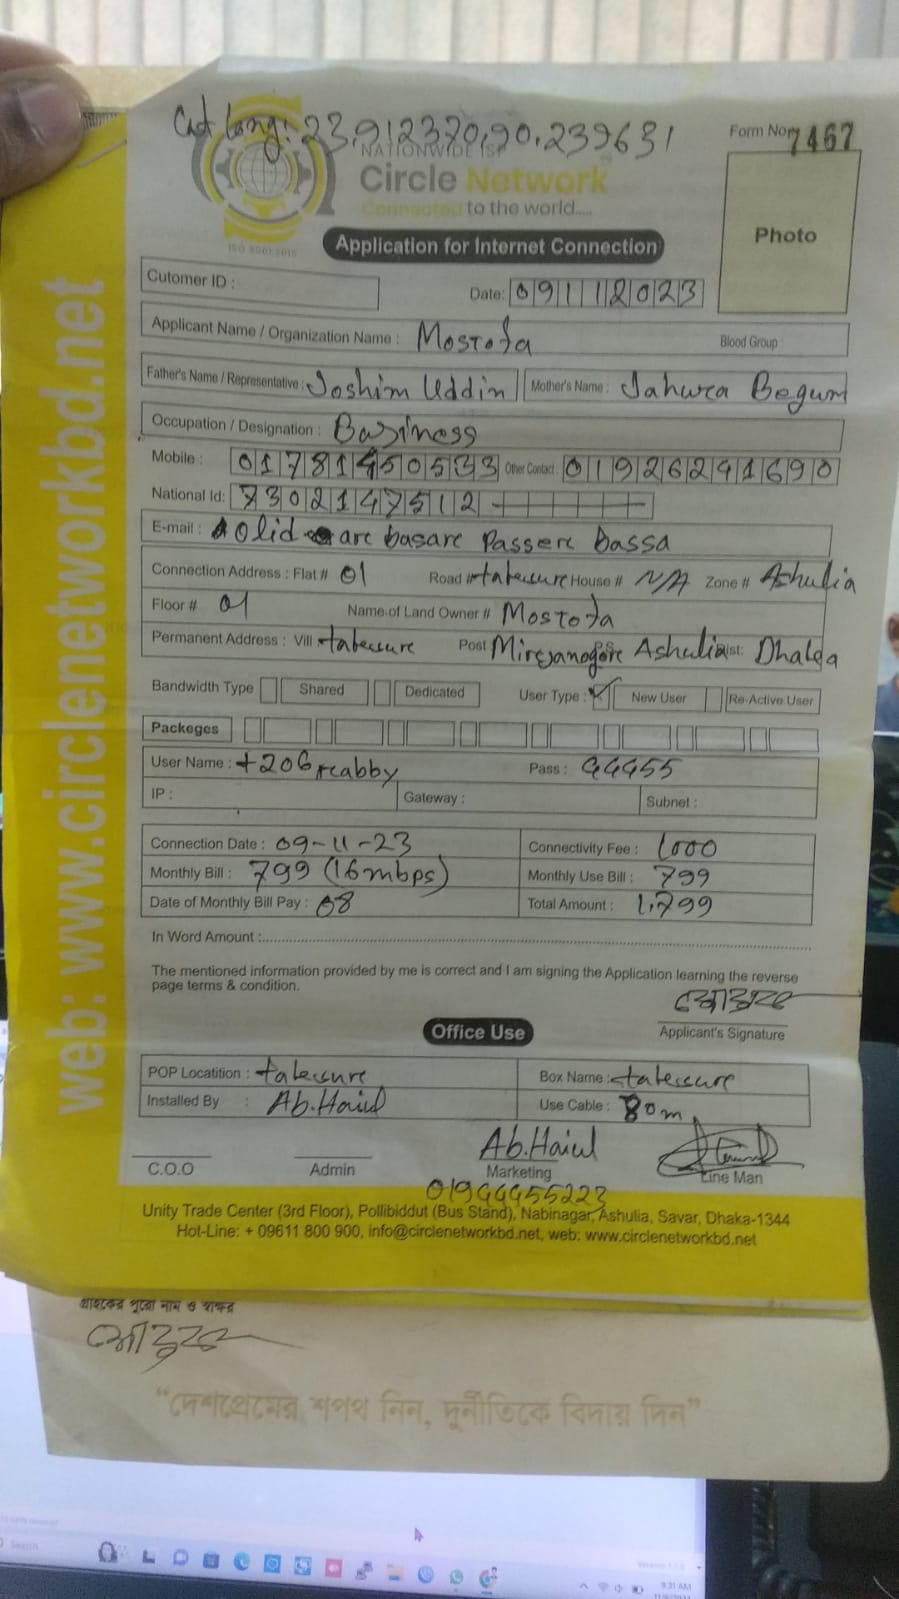 Cat Long: 23.912320,90.239631
Form No: 7467
NATIONWIDE ISP
Circle Network
Connected to the world....
ISO 9001:2015
Photo
Application for Internet Connection
Cutomer ID :
Date: 09112023
Applicant Name / Organization Name : Mostofa Blood Group :
Father's Name / Representative : Joshim Uddin Mother's Name : Jahura Begum
Occupation / Designation : Business
Mobile : 01781450533 Other Contact : 01926241690
National Id: 7302147512
E-mail : olid are basare Passere bassa
Connection Address : Flat # 01 Road # House # N/A Zone # Ashulia
Floor # 01 Name of Land Owner # Mostofa
Permanent Address : Vill Post Ashulia Dist: Dhaka
Bandwidth Type Shared Dedicated User Type : New User Re-Active User
Packeges
User Name : +206rabby Pass : 44455
IP : Gateway : Subnet :
Connection Date : 09-11-23 Connectivity Fee : 1000
Monthly Bill : 799 (16mbps) Monthly Use Bill : 799
Date of Monthly Bill Pay : 08 Total Amount : 1,799
In Word Amount :
The mentioned information provided by me is correct and I am signing the Application learning the reverse
page terms & condition.
Applicant's Signature
Office Use
POP Locatition : Box Name :
Installed By : Ab.Haiul Use Cable : 80m
Ab.Haiul
C.O.O Admin Marketing Line Man
01944455223
Unity Trade Center (3rd Floor), Pollibiddut (Bus Stand), Nabinagar, Ashulia, Savar, Dhaka-1344
Hot-Line: + 09611 800 900, info@circlenetworkbd.net, web: www.circlenetworkbd.net
web: www.circlenetworkbd.net
গ্রাহকের পুরো নাম ও স্বাক্ষর
“দেশপ্রেমের শপথ নিন, দুর্নীতিকে বিদায় দিন”
9:31 AM